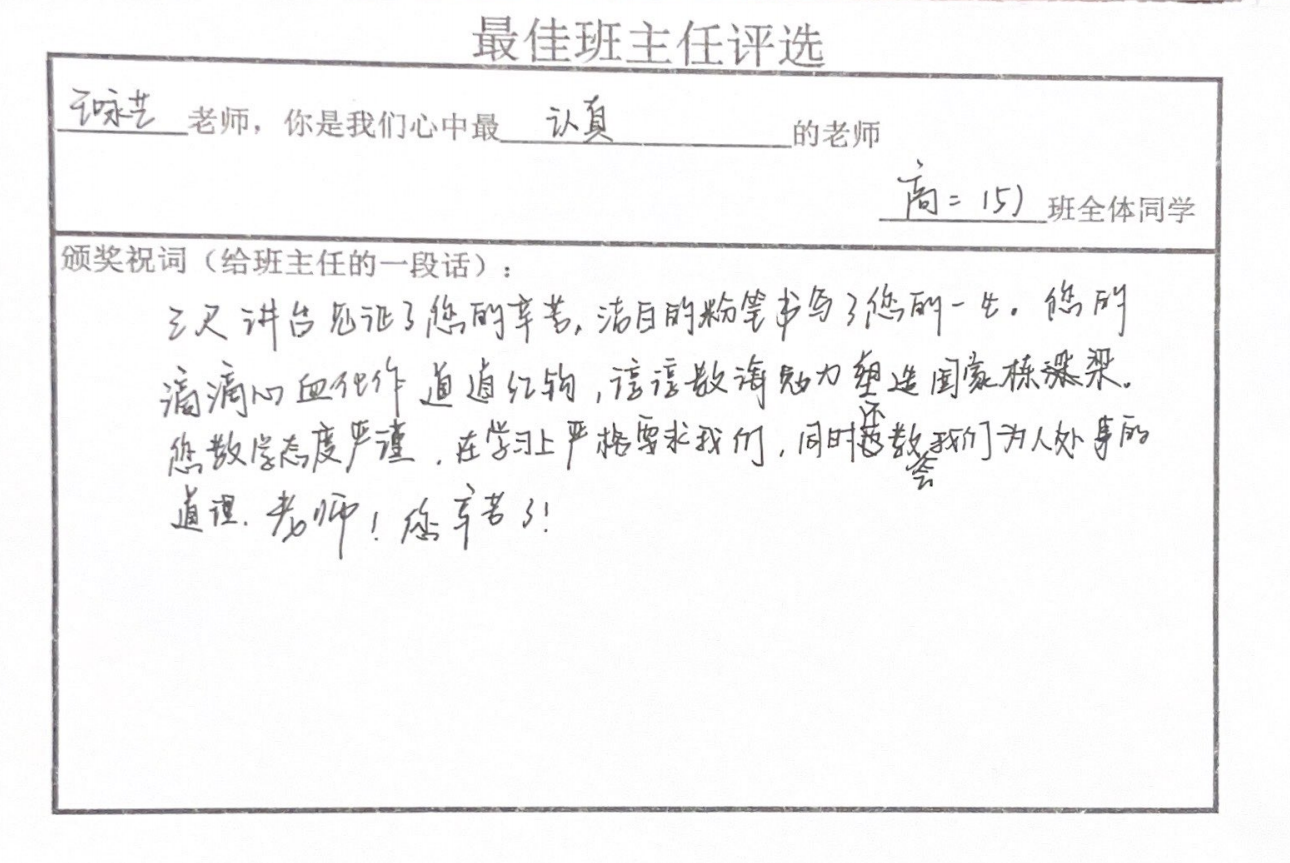 最佳班主任评选
咏芸老师，你是我们心中最认真的老师
高二（5）班全体同学
颁奖祝词（给班主任的一段话）：
三尺讲台见证了您的辛苦，洁白的粉笔书写了您的一生。您的
滴滴心血化作道道红钩，谆谆教诲勉力塑造国家栋梁。
您教学态度严谨，在学习上严格要求我们，同时还教会我们为人处事的
道理。老师！您辛苦了！